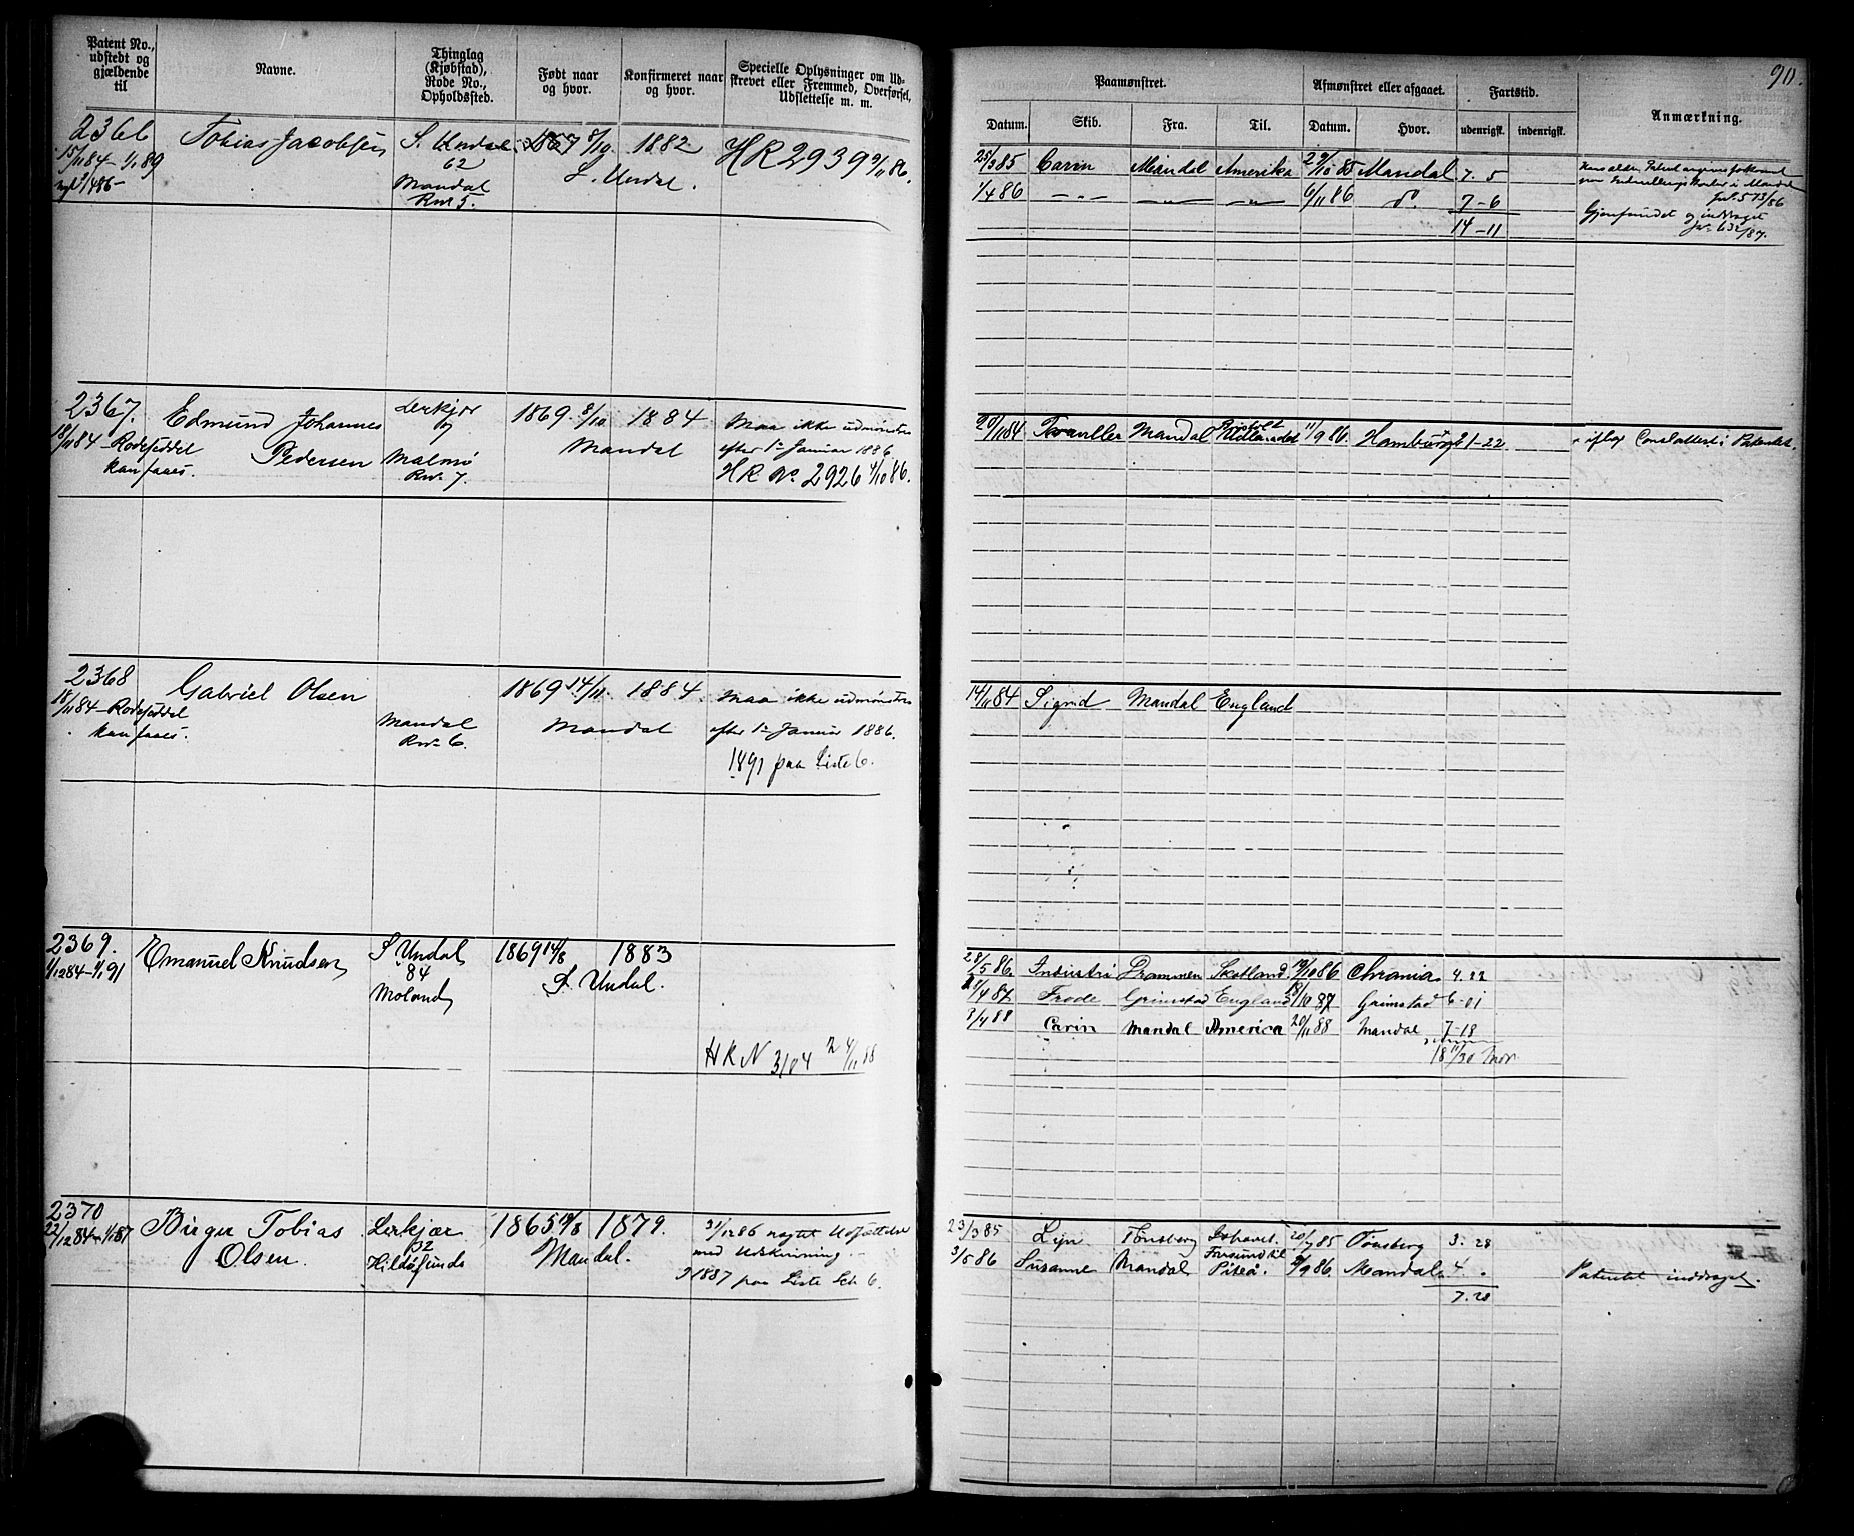 Patent No.,
udstedt og
gjældende
til
Navne.
Thinglag
(Kjøbstad),
Rode No.,
Opholdssted.
Født naar
og hvor.
Konfirmeret naar
og hvor.
Specielle Oplysninger om Ud-
skrevet eller Fremmed, Overførsel,
Udslettelse m. m.
2366
15/11 84 - 1/1 89
Tobias Jacobsen
S. Undal
62
Mandal
Rn 5.
1867 8/10
1882
S. Undal.
HR 2939 9/11 86.
2367.
18/11 84 - Rodeseddel
kan faaes.
Edmund Johannes
Pedersen
Lerkjær
07
Malmø
Rn. 7.
1869. 8/10
1884
Mandal
Maa ikke udmønstres
efter 1ste Januar 1886.
HR No. 2926 4/10 86.
2368
18/11 84 - Rodeseddel
kan faaes.
Gabriel Olsen
Mandal
Rn. 6.
1869 14/11.
1884.
Mandal
Maa ikke udmønstres
efter 1ste Januar 1886.
1891 paa Liste 6.
2369.
1/12 84 - 1/1 91
Emanuel Knudsen
S. Undal
84
Moland
1869 14/8
1883
S. Undal.
HRN 3104 24/11 88
2370
22/12 84 - 1/1 87
Birger Tobias
Olsen.
Lerkjær
32
Hildøsunds
1865 19/8
1879.
Mandal.
31/12 86 nægtet Udsættelse
med Udskrivning.
1887 paa Liste Lit 6.
90.
Paamønstret.
Afmønstret eller afgaaet.
Fartstid.
Anmærkning.
Datum.
Skib.
Fra.
Til.
Datum.
Hvor.
udenrigsk.
indenrigsk.
25/3 85 Carin Mandal Amerika 29/10 85 Mandal 7. 5
1/4 86 - " - - " - - " - 6/11 86 do. 7 - 6
14 - 11
Hans ældre Patent angives forkommet
Gjenfundet og inddraget
Jn. 632/87.
20/11 84 Traveller Mandal Bristol Udlandet 11/9 86. Hamburg 21-22
14/11 84 Sigrid Mandal England
28/5 86. Industri Drammen Skotland. 19/10 86 Chrania 4. 22
21/4 87 Frode Grimstad England 18/10 87 Grimstad 6-01
3/4 88 Carin Mandal America 20/11 88 Mandal 7-18
23/3 85 Lyn Tønsberg Ishavet. 20/7 85 Tønsberg 3. 28
3/5 86 Susanne Mandal Piteå. 9/9 86. Mandal 4 .
7. 28
Patentet inddraget.